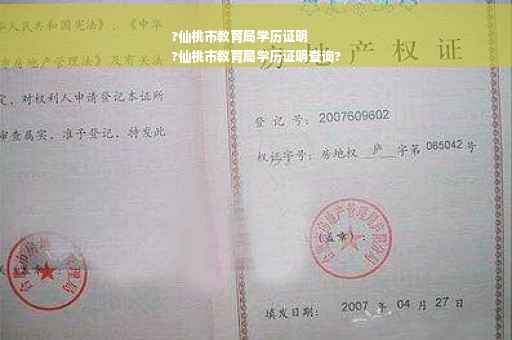 ?仙桃市教育局学历证明
?仙桃市教育局学历证明查询?
人民共和国宪法》、《中华
房地产管理法》及有关法
定，对权利人申请登记本证所
审查属实，准予登记，特发此
房地产权证
登记号：2007609602
权证字号：房地权 庐 字第 065042 号
(盖章)：
填发日期： 2007 年 04 月 27 日